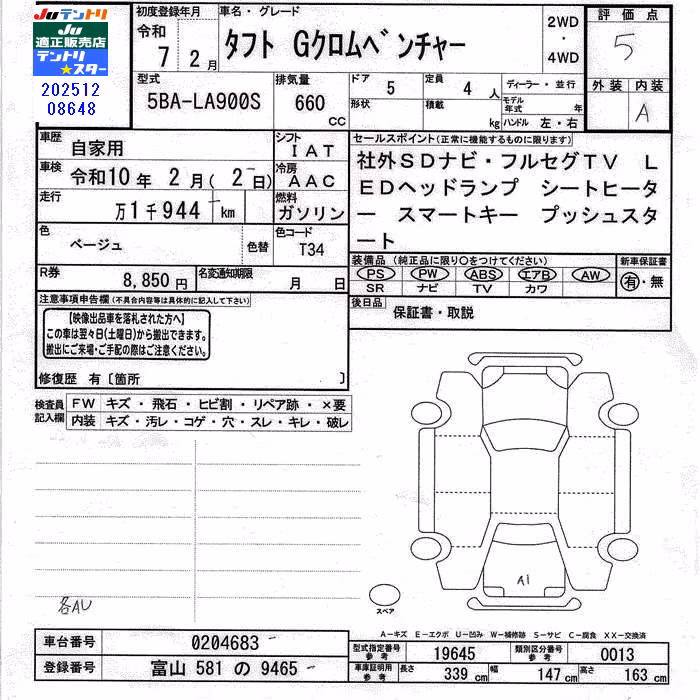 Juテントリ
Ju
適正販売店
テントリ
★スター
202512
08648
初度登録年月
令和
7 2月
車名・グレード
タフト Gクロムベンチャー
2WD
・
4WD
評価点
5
型式
5BA-LA900S
排気量
660
cc
ドア
5
定員
4人
形状
積載
kg
ディーラー・並行
モデル年式 年
ハンドル 左・右
外装 内装
A
車歴
自家用
シフト
IAT
車検
令和10年 2月( 2日)
冷房
AAC
走行
万1千944 km
燃料
ガソリン
色
ベージュ
色替
色コード
T34
R券
8,850円
名変通知期限
月 日
セールスポイント(正常に機能するものに限ります)
社外SDナビ・フルセグTV L
EDヘッドランプ シートヒータ
ー スマートキー プッシュスタ
ート
装備品(純正品に限り○をつけてください)
PS PW ABS エアB AW
SR ナビ TV カワ
新車保証書
有・無
後日品
保証書・取説
注意事項申告欄(不具合内容等は具体的に記入して下さい)
【映像出品車を落札された方へ】
この車は翌々日(土曜日)から搬出できます。
搬出にご来場・ご手配の際はご注意ください。
修復歴 有[箇所 ]
検査員
記入欄
FW キズ・飛石・ヒビ割・リペア跡・×要
内装 キズ・汚レ・コゲ・穴・スレ・キレ・破レ
各AU
A1
スペア
A－キズ E－エクボ U－凹み W－補修跡 S－サビ C－腐食 XX－交換済
車台番号
0204683
登録番号
富山 581 の 9465
型式指定番号
参考
19645
類別区分番号
参考
0013
車庫証明用
参考
長さ
339 cm
幅
147 cm
高さ
163 cm